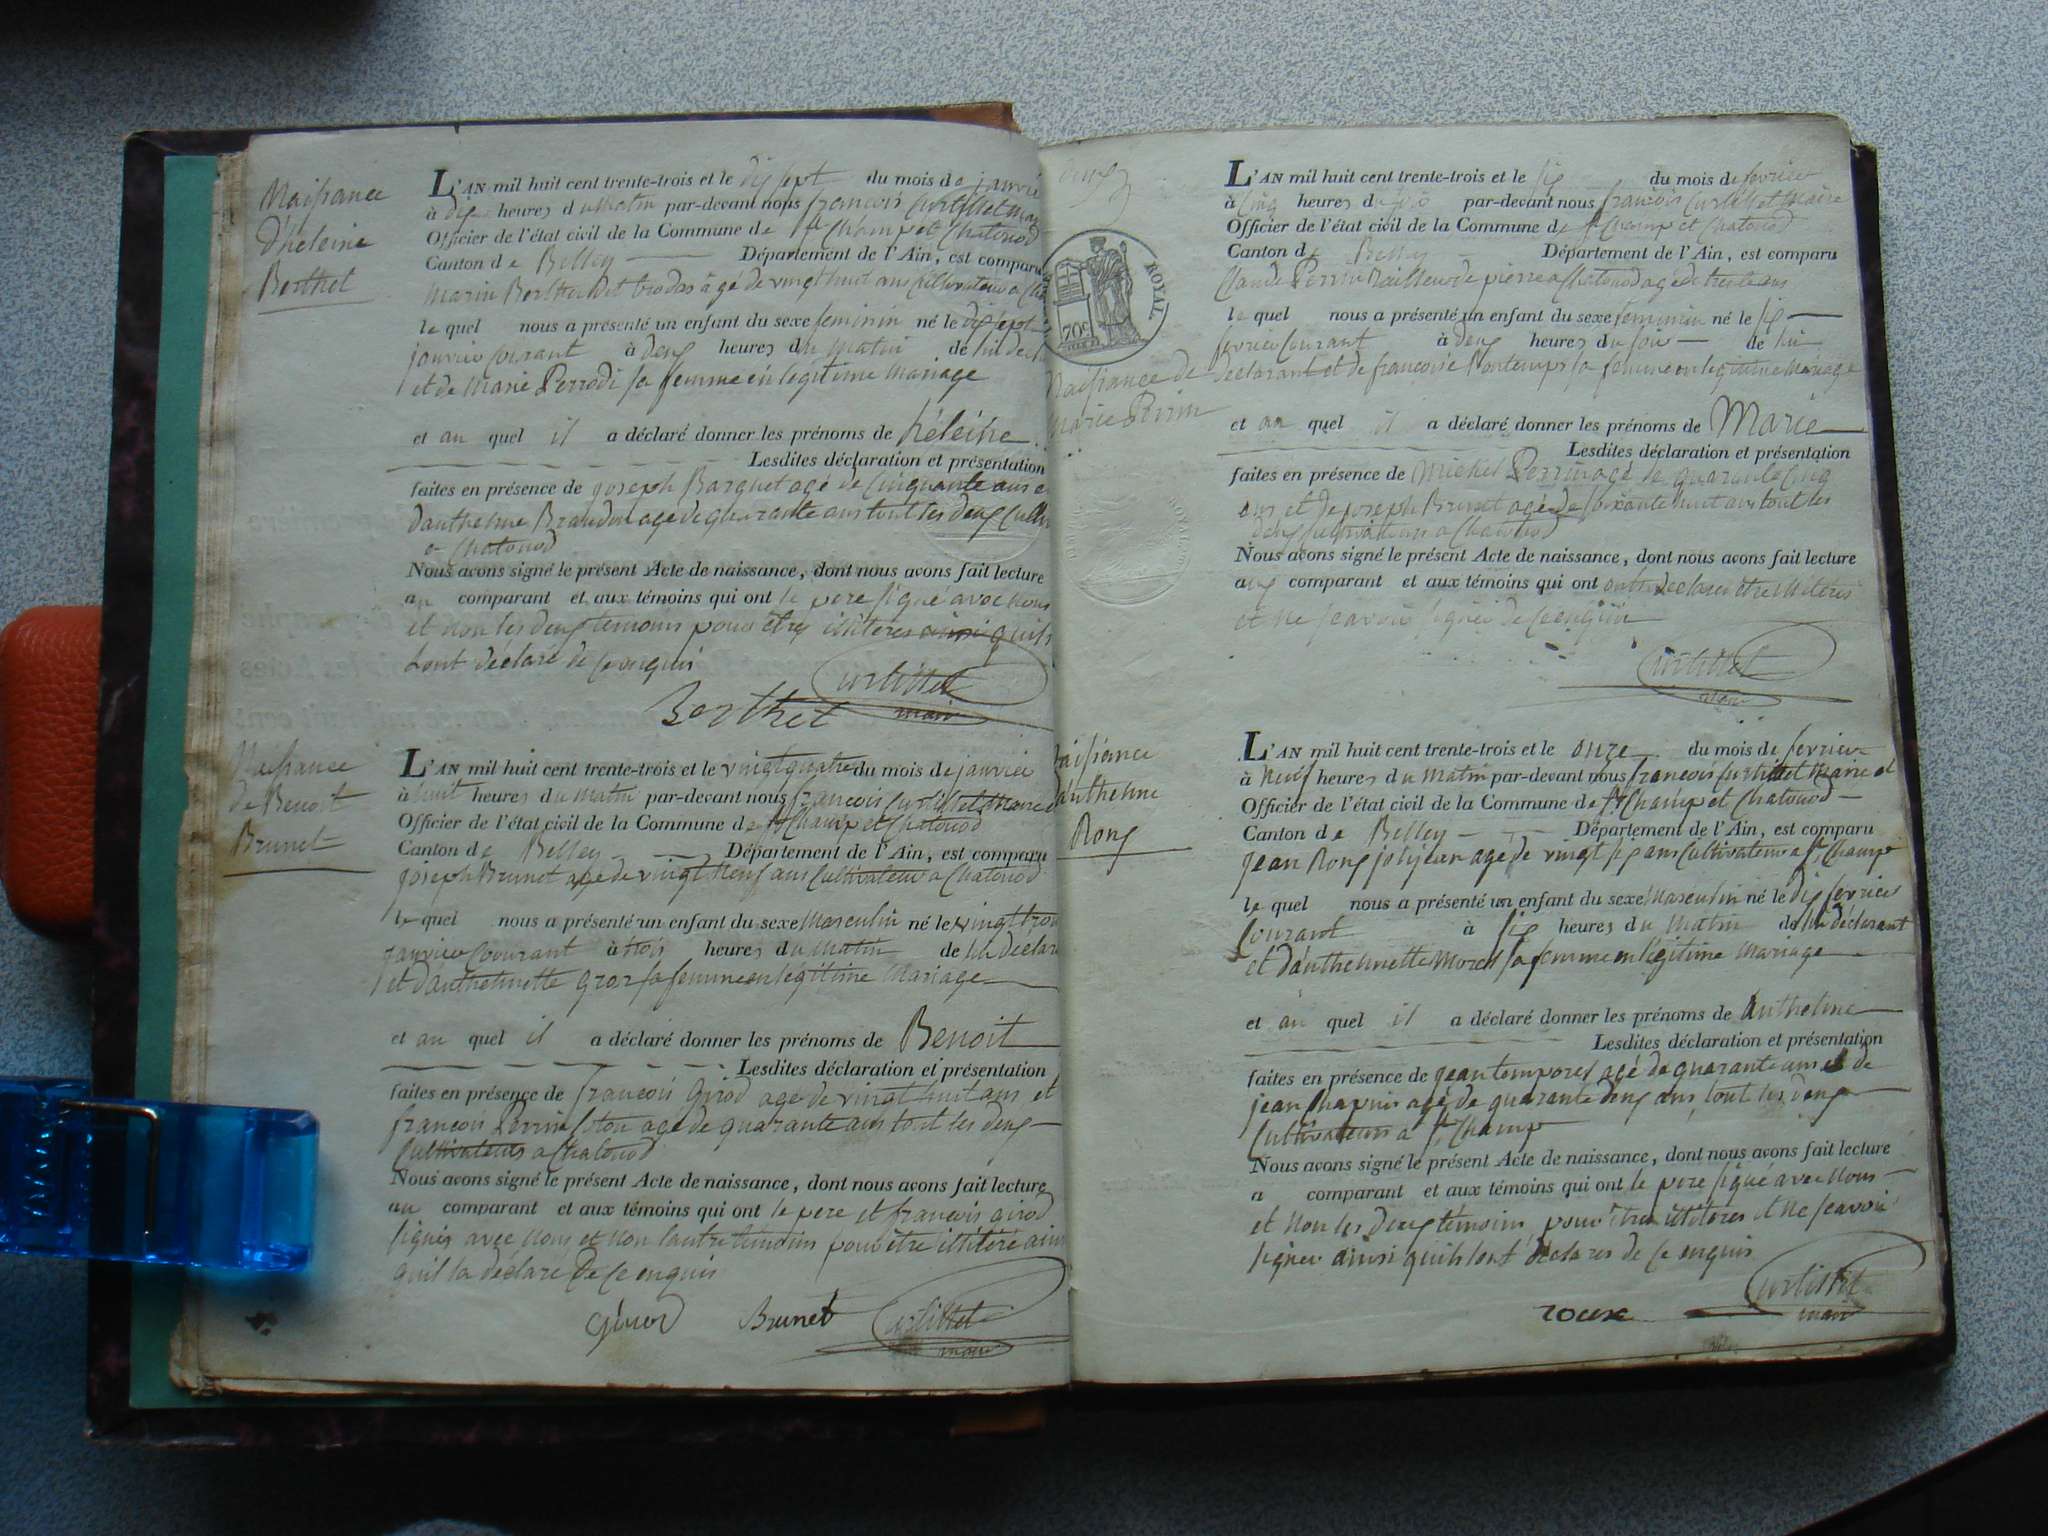 Naissance
d'héleine
Berthet
L'AN mil huit cent trente-trois et le dix sept du mois de janvie
à dix heures du matin par-devant nous françois Curtillet
Officier de l'état civil de la Commune de St Champ et Chatonod
Canton de Belley Département de l'Ain, est comparu
Marin Berthet âgé de vingt huit ans Cultivateur a
le quel nous a présenté un enfant du sexe feminin né le dix sept
janvier courant à deux heures du matin de lui
et de Marie Perrodi sa femme en legitime mariage
et au quel il a déclaré donner les prénoms de héleine
Lesdites déclaration et présentation
faites en présence de joseph Barquet agé de Cinquante ans
danthelme agé de quarante ans tout les deux
a Chatonod
Nous avons signé le présent Acte de naissance, dont nous avons fait lecture
au comparant et aux témoins qui ont le pere signé avec nous
et non les deux temoins pour être illiteres ainsi quils
lont déclaré de ce enquis
Curtillet
Berthet maire
Naissance
de Benoit
Brunet
L'AN mil huit cent trente-trois et le vingt quatre du mois de janvier
à huit heures du matin par-devant nous françois Curtillet Maire
Officier de l'état civil de la Commune de St Champ et Chatonod
Canton de Belley Département de l'Ain, est comparu
joseph Brunet agé de vingt Neuf ans Cultivateur a Chatonod
le quel nous a présenté un enfant du sexe Masculin né le vingt trois
janvier Courant à trois heures du matin de lui déclara
et danthelmette gros sa femme en legitime Mariage
et au quel il a déclaré donner les prénoms de Benoit
Lesdites déclaration et présentation
faites en présence de françois girod agé de vingt huit ans et
françois Perrin agé de quarante ans tout les deux
Cultivateurs a Chatonod
Nous avons signé le présent Acte de naissance, dont nous avons fait lecture
au comparant et aux témoins qui ont le pere et françois girod
signés avec nous et non lautre témoin pour être illitéré ainsi
quil la déclaré de ce enquis
Brunet Curtillet
maire
ROYAL
70c
Naissance de
Marie Perrin
L'AN mil huit cent trente-trois et le six du mois de fevrier
à Cinq heures du par-devant nous françois Curtillet Maire
Officier de l'état civil de la Commune de St Champ et Chatonod
Canton de Belley Département de l'Ain, est comparu
Claude Perrin tailleur de pierre a Chatonod agé de trente ans
le quel nous a présenté un enfant du sexe feminin né le six
fevrier Courant à deux heures du soir de lui
déclarant et de françoise sa femme en legitime Mariage
et au quel il a déclaré donner les prénoms de Marie
Lesdites déclaration et présentation
faites en présence de Michel Perrin agé de quarante Cinq
ans et de joseph Brunet agé de soixante huit ans tout les
deux Cultivateurs a Chatonod
Nous avons signé le présent Acte de naissance, dont nous avons fait lecture
aux comparant et aux témoins qui ont déclaré être illiteres
et ne sçavoir signer de ce enquis
Curtillet
maire
Naissance
danthelme
Roux
L'AN mil huit cent trente-trois et le onze du mois de fevrier
à Neuf heures du Matin par-devant nous françois Curtillet Maire et
Officier de l'état civil de la Commune de St Champ et Chatonod
Canton de Belley Département de l'Ain, est comparu
jean Roux agé de vingt six ans Cultivateur a St Champ
le quel nous a présenté un enfant du sexe Masculin né le dix fevrier
Courant à six heures du Matin de lui déclarant
et danthelmette Morel sa femme en légitime Mariage
et au quel il a déclaré donner les prénoms de anthelme
Lesdites déclaration et présentation
faites en présence de jean agé de quarante ans et de
jean Chapuis agé de quarante deux ans, tout les deux
Cultivateurs a St Champ
Nous avons signé le présent Acte de naissance, dont nous avons fait lecture
a comparant et aux témoins qui ont le pere signé avec Nous
et Non les deux témoins pour être illiteres et Ne sçavoir
signer ainsi quils lont déclares de ce enquis
Curtillet
roux maire